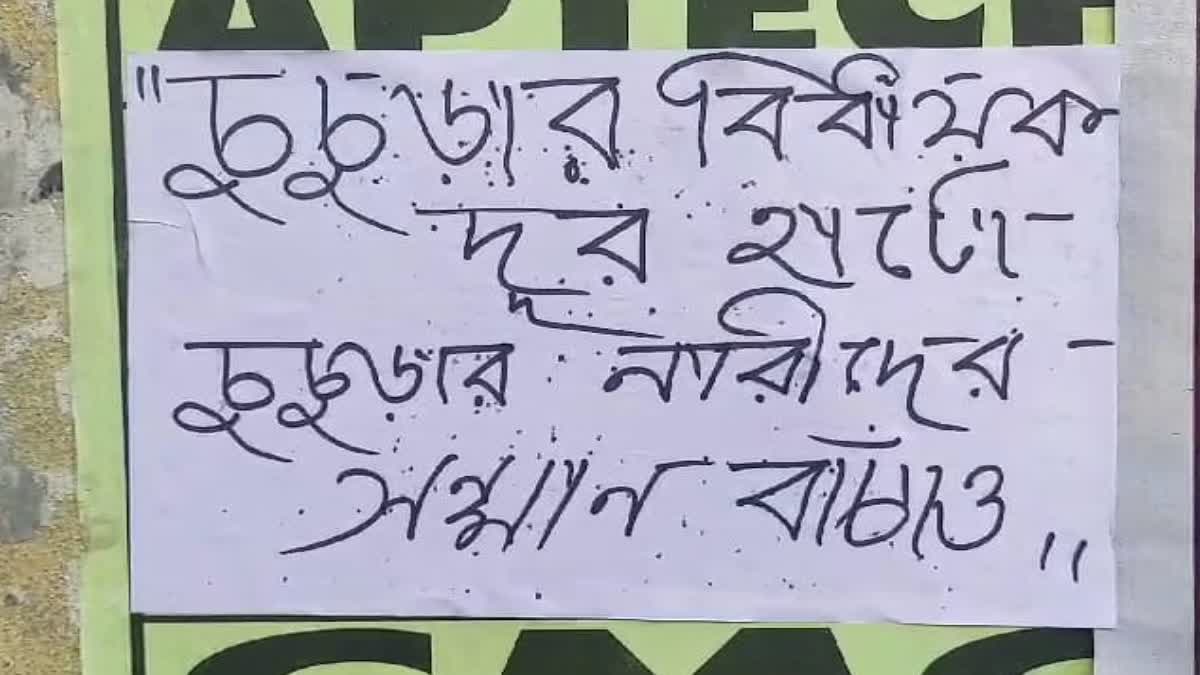 APTECH
"চুচুড়ার বিধায়ক
দূর হাটো-
চুচুড়ার নারীদের -
সন্মান বাঁচাও"